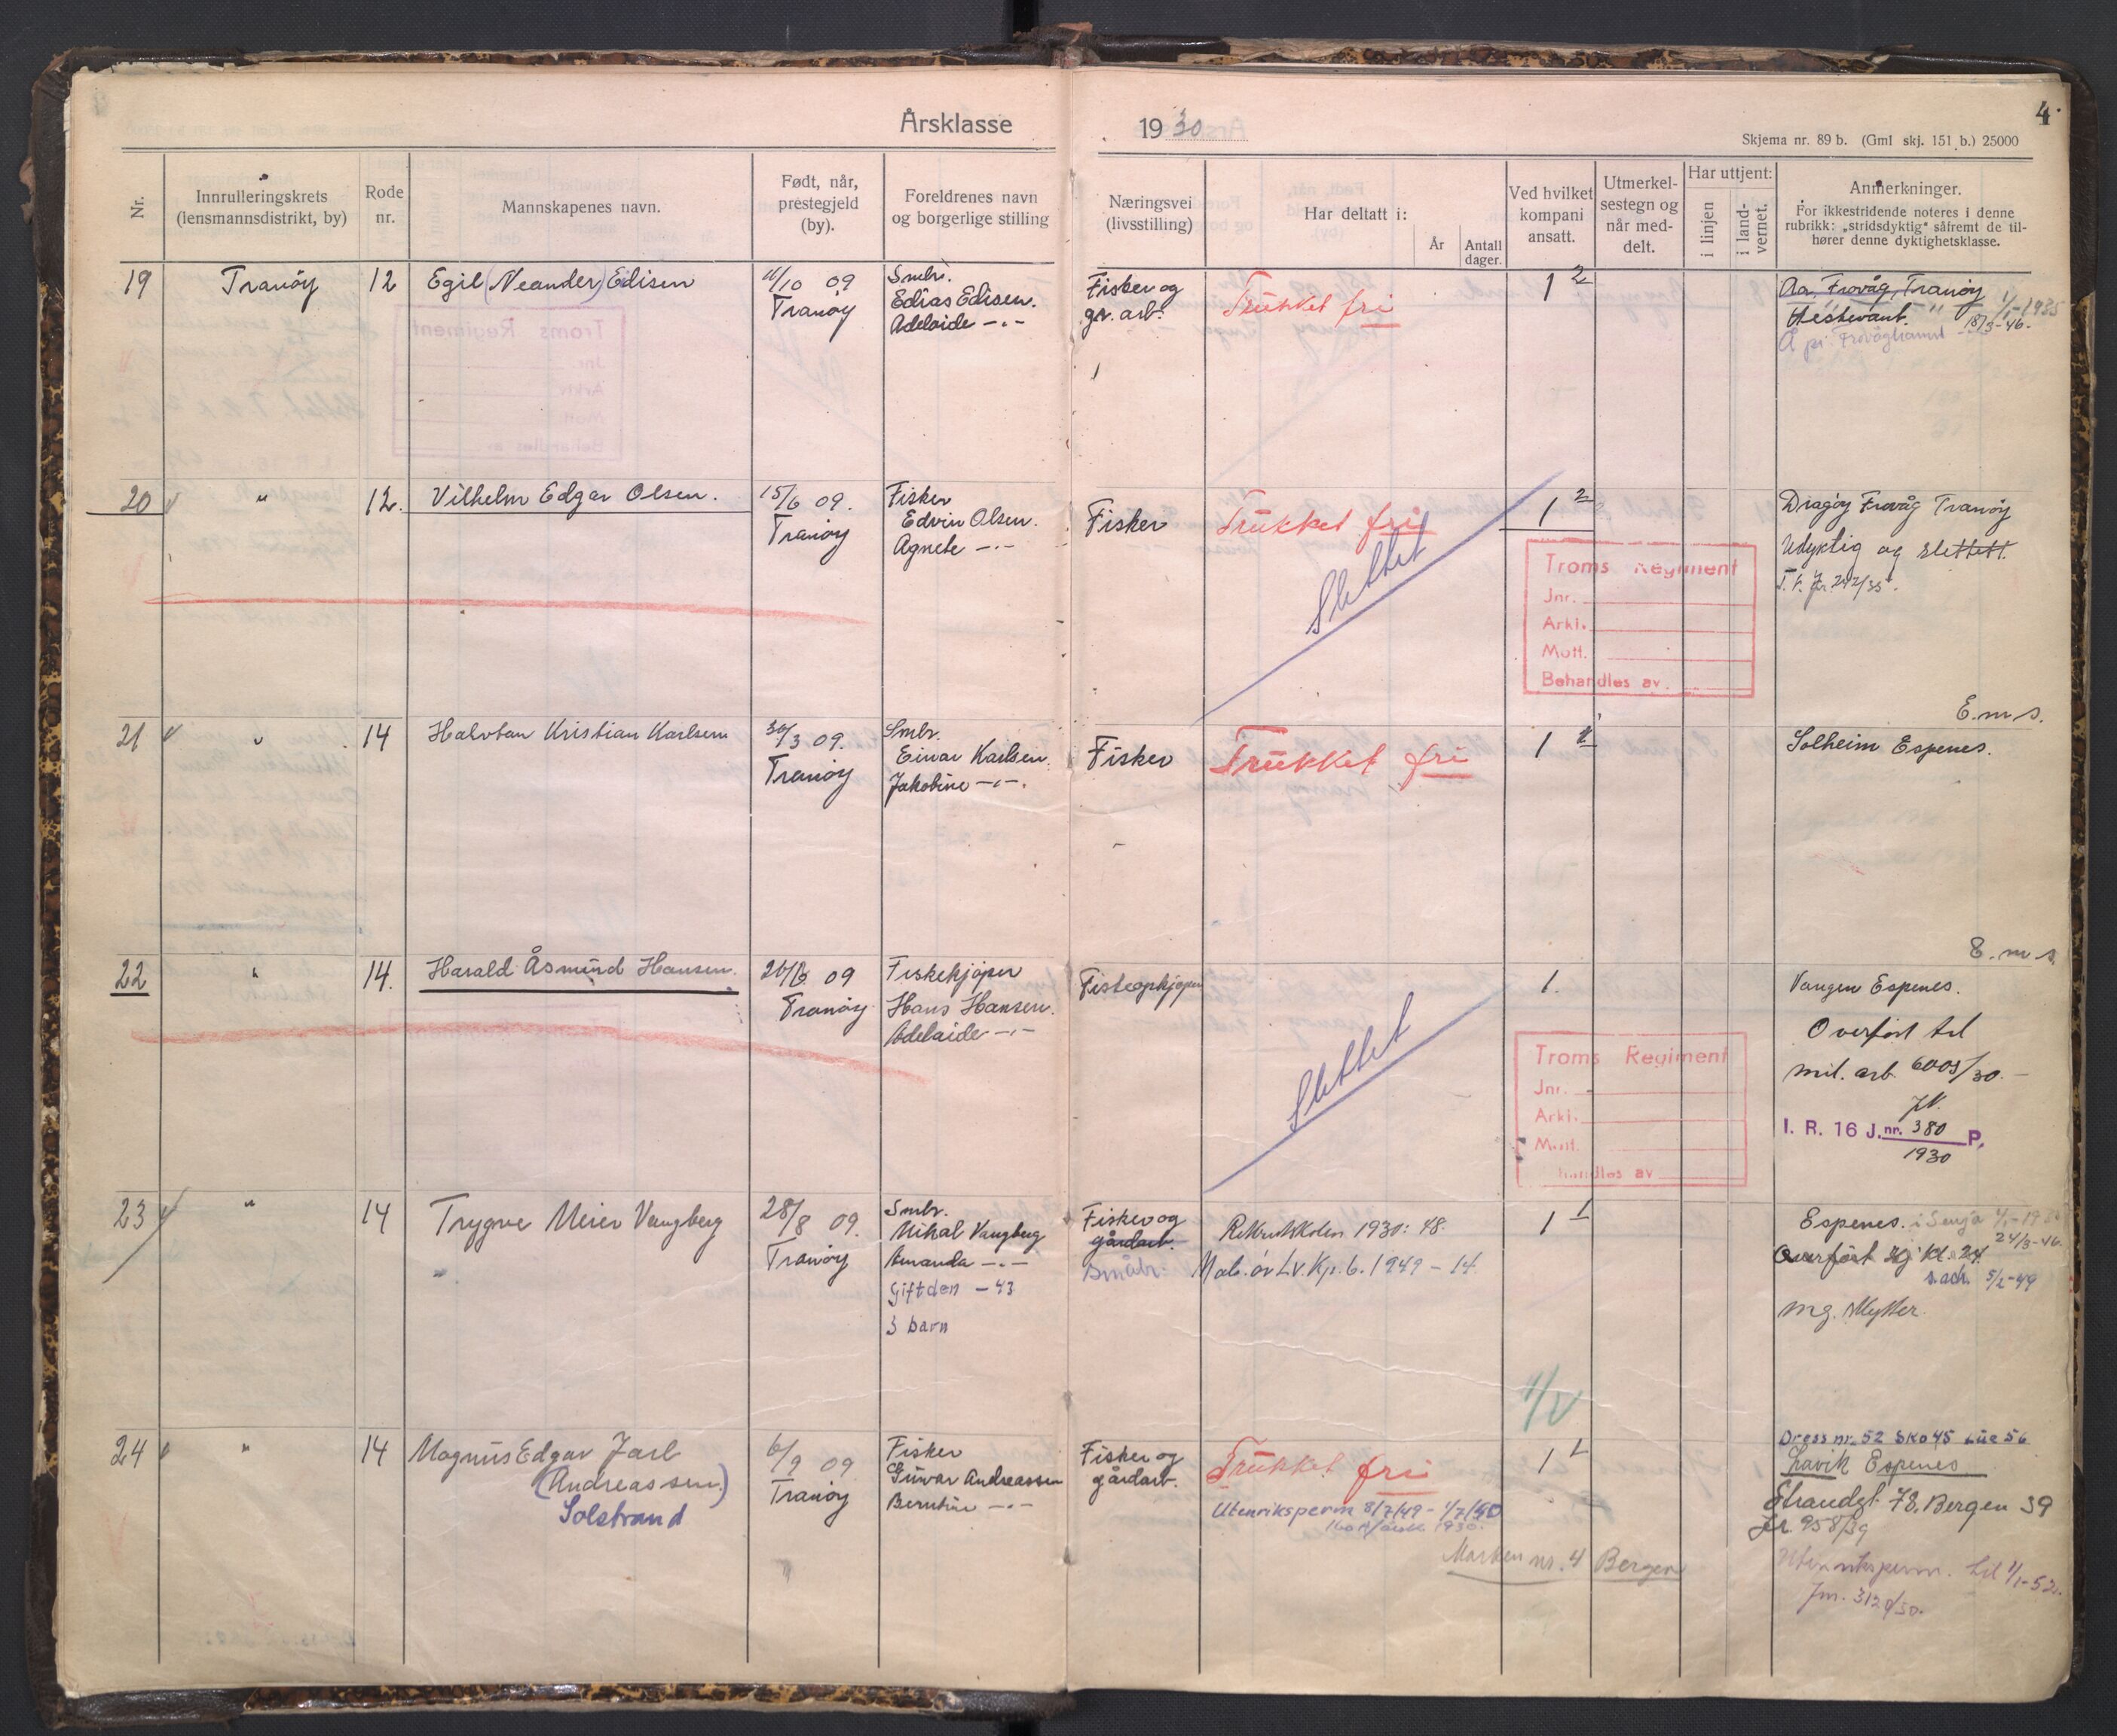 Årsklasse 1930
4.
Skjema nr. 89 b. (Gml skj. 151 b.) 25000
Nr.
Innrulleringskrets
(lensmannsdistrikt, by)
Rode
nr.
Mannskapenes navn.
Født, når,
prestegjeld
(by).
Foreldrenes navn
og borgerlige stilling
Næringsvei
(livsstilling)
Har deltatt i:
År
Antall
dager.
Ved hvilket
kompani
ansatt.
Utmerkel-
sestegn og
når med-
delt.
Har uttjent:
i linjen
i land-
vernet.
Anmerkninger.
For ikkestridende noteres i denne
rubrikk: „stridsdyktig“ såfremt de til-
hører denne dyktighetsklasse.
19
Tranöy
12
Egil (Neander) Edisen
11/10 09
Tranöy
Smbr.
Edias Edisen.
Adelaide -"-
Fisker og
gr. arb.
Trukket fri
1 2
Aa, Frovåg, Tranöy
1/1-1935
18/3-46.
20
"
12.
Vilhelm Edgar Olsen.
15/6 09.
Tranöy
Fisker
Edvin Olsen.
Agnete -"-
Fisker
Trukket fri
Slettet
1 2
Troms Regiment
Jnr.
Arki.
Mott.
Behandles av
Dragöy Frovåg Tranöy
Udyktig og slettett.
21
"
14
Halvdan Kristian Karlsen
30/3 09.
Tranöy
Smbr.
Einar Karlsen.
Jakobine -"-
Fisker
Trukket fri
1
E.m.s.
Solheim Espenes.
22
"
14.
Harald Åsmund Hansen.
Tranöy
09
Fiskekjöper
Hans Hansen.
Adelaide -"-
Fiskeopkjöper
Slettet
1.
Troms Regiment
Jnr.
Arki.
Mott.
handles av
E.m.s.
Vangen Espenes.
Overfört til
mil. arb. 6005/30.
I. R. 16 J.nr. 380 P.
1930
23
"
14
Trygve Meier Vangberg
28/8 09.
Tranöy
Smbr.
Mikal Vangberg
Amanda -"-
Gift den - 43
3 barn
Fisker og
gårdarb.
Småbr.
Rekruttskolen 1930: 48.
Mob. öv Lv. Kp. 6. 1949 - 14.
1 1
Espenes. i Senja
24/3-46.
Overfört
5/2-49
mg. skytter.
24
"
14
Magnus Edgar Jarl
(Andreassen.)
Solstrand
6/9 09
Tranöy
Fisker
Gunvar Andreassen
Berntine -"-
Fisker og
gårdarb.
Trukket fri
Utenriksperm 8/7/49 - 1/7/50
1 1
Marken nr. 4 Bergen
Dress nr. 52 Sko 45 Lue 56
Lavik Espenes
Strandgt. 78. Bergen 39
Jr. 958/39
Utenriksperm. til 1/1-52.
Jnr. 3120/50.